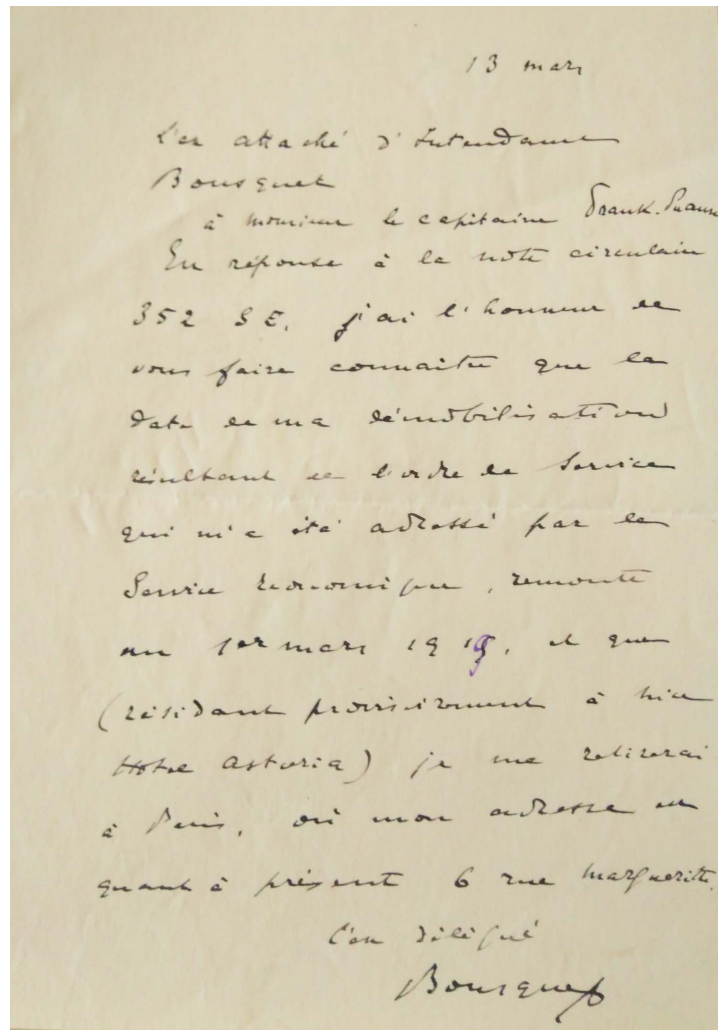 13 mars
L'ex attaché d'Intendance
Bousquet
à monsieur le capitaine Frank-
En réponse à la note circulaire
352 S E. j'ai l'honneur de
vous faire connaître que la
date de ma démobilisation
résultant de l'ordre de service
qui m'a été adressé par le
Service Economique, remonte
au 1er mars 1919, et que
(résidant provisoirement à Nice
Hotel Astoria) je me retirerai
à Paris, où mon adresse est
quant à présent 6 rue Margueritte.
L'ex délégué
Bousquet